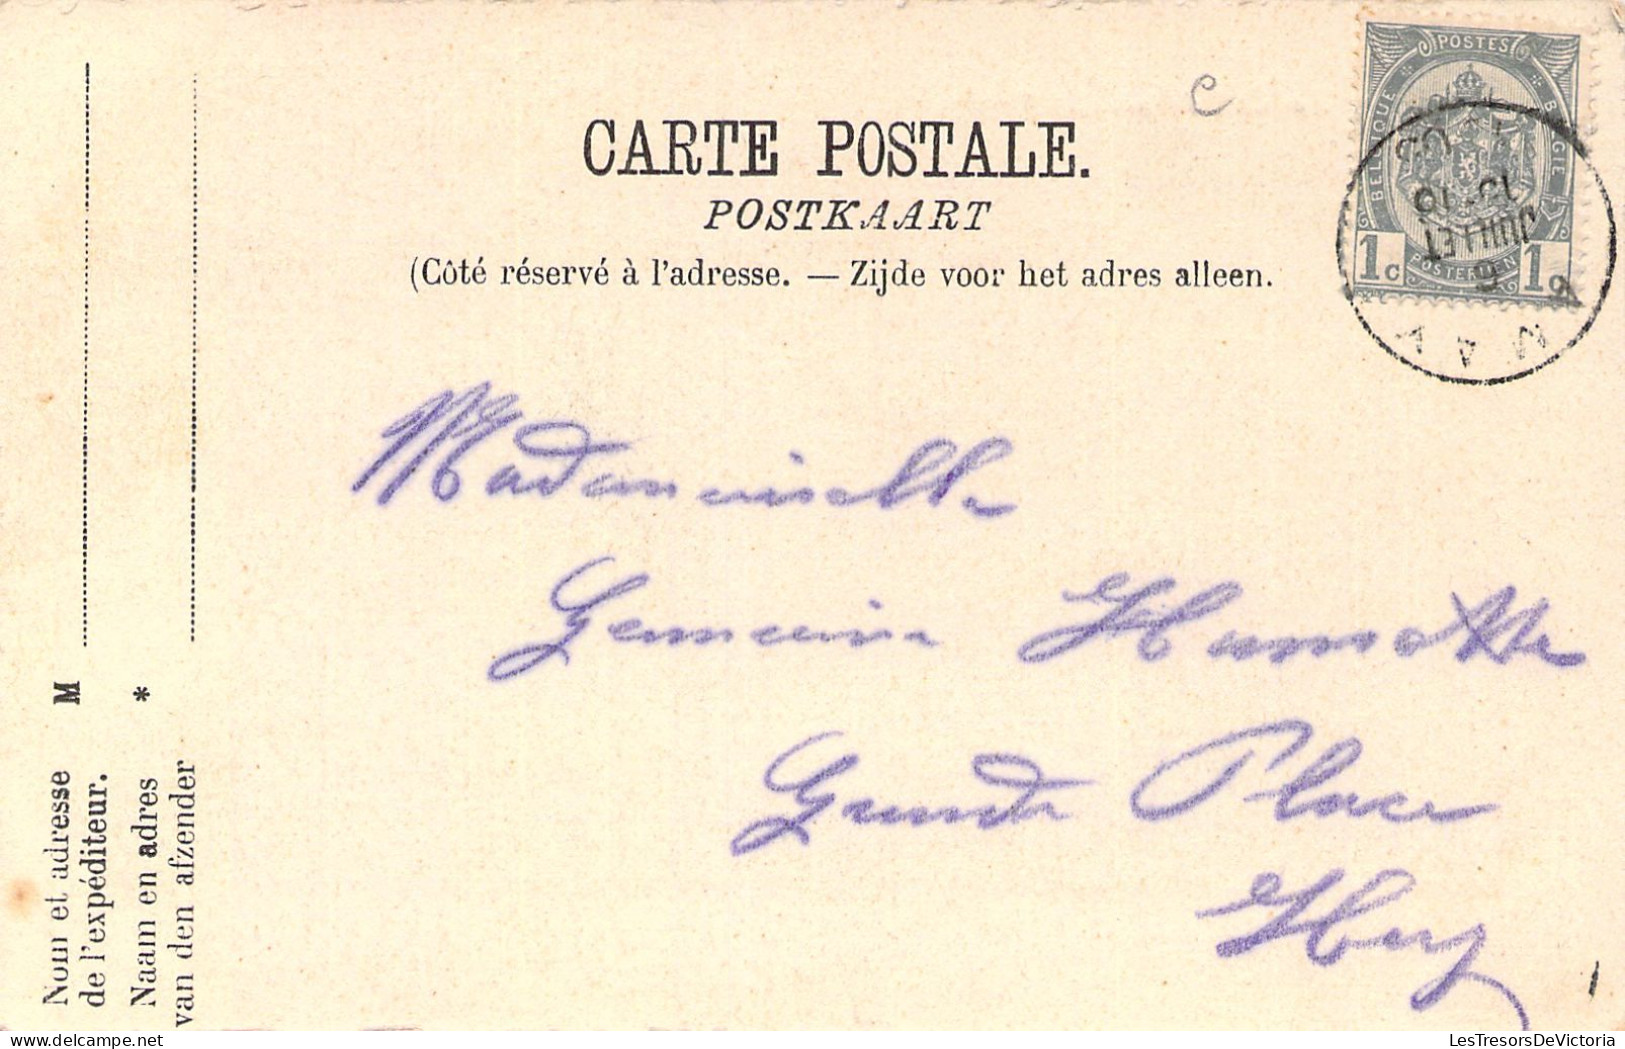 CARTE POSTALE.
POSTKAART
(Côté réservé à l'adresse. — Zijde voor het adres alleen.
c
POSTES
BELGIQUE
BELGIE
POSTERIJEN
1c 1c
15-16
JUILLET
6
Mademoiselle
Germaine
Grande Place
Huy
M
Nom et adresse
de l'expéditeur.
*
Naam en adres
van den afzender
LesTresorsDeVictoria